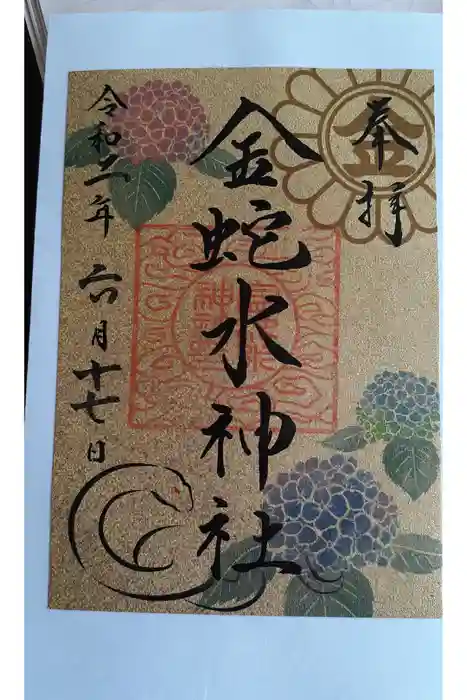 奉拝
金
金蛇水神社
令和二年 六月十七日